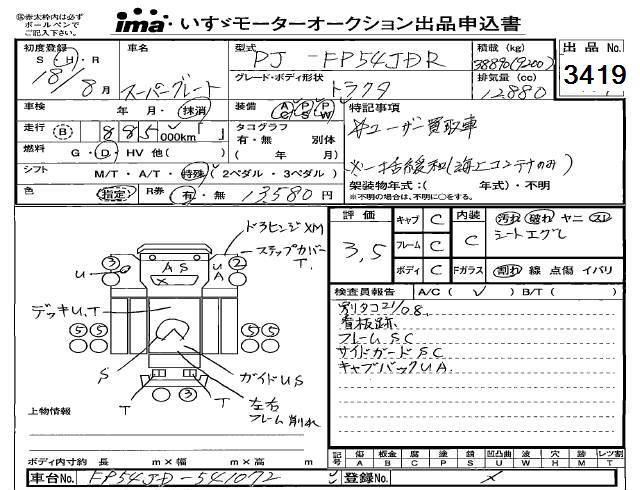 ※赤太枠内は必ず
ボールペンで
ご記入下さい。
ima いすゞモーターオークション出品申込書
初度登録 車名 型式 積載 (kg) 出品 No.
S・H・R PJ-FP54JDR
18年 8月 スーパーグレート グレード・ボディ形状 排気量 (cc) 3419
トラクタ 12,880
車検 年・月・抹消 装備 A/C P/S P/W 特記事項
走行 (B) 885,000km「 」 タコグラフ ※ユーザー買取車
有・無 別体
燃料 G・D・HV 他( ) ( 年/ 月) ※一括緩和(海上コンテナのみ)
シフト M/T・A/T・特殊 (2ペダル・3ペダル) 架装物年式:( 年式)・不明
色 指定 R券 有・無 13,580円 ※不明の場合は、不明に○をする。
ドラヒンジXM
ステップカバーT.
評価 キャブ C 内装 汚れ 破れ ヤニ スレ
3.5 フレーム C C シートエグレ
ボディ C Fガラス 割れ 線 点傷 イバリ
検査員報告 A/C( ✓ ) B/T( )
別タコ21/08.
看板跡.
フレームSC
サイドガードSC
キャブバックUA.
3 U A S X U A 2
デッキU.T
5 5 5 5
S ガイドUS
T T 左右
フレーム削れ
上物情報
ボディ内寸約 長 m×幅 m×高 m
記号 傷 板金 腐 塗 錆 凹凸曲 波 穴 跡 レツ割
A B C P S U W H M T
車台No. FP54JD-541072 登録No.